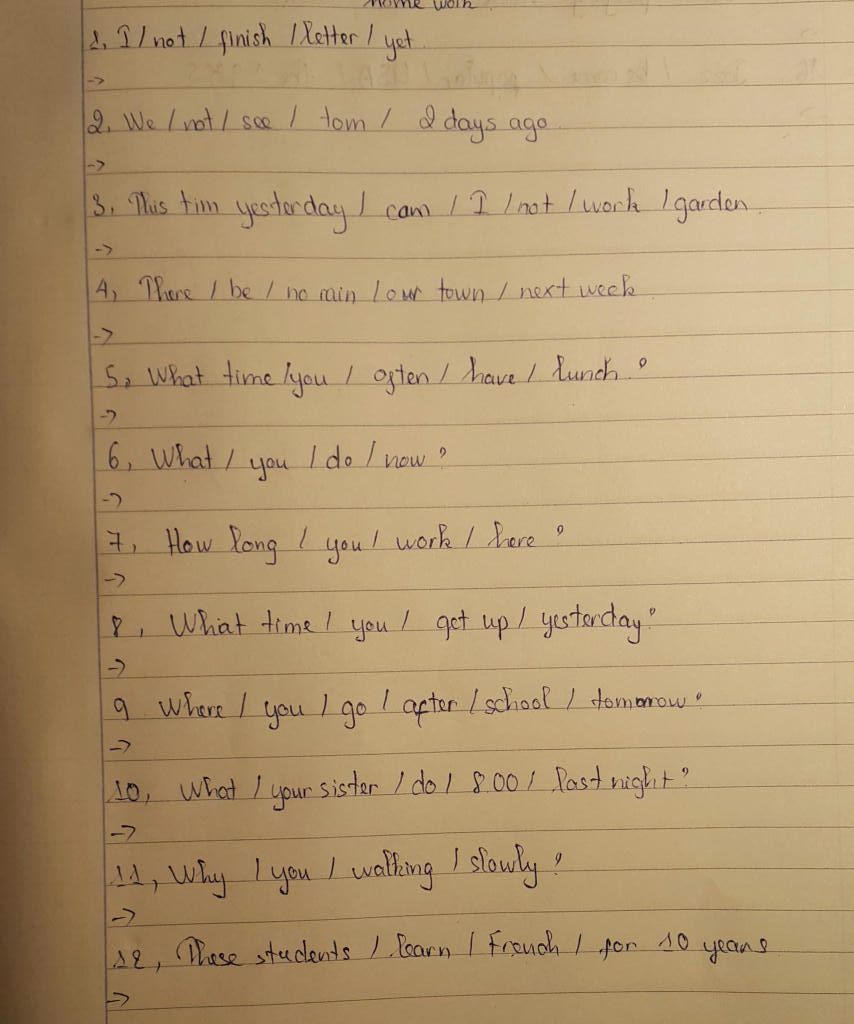 home work
1, I / not / finish / letter / yet
->
2, We / not / see / tom / 2 days ago
->
3, This tim yesterday / cam / I / not / work / garden
->
4, There / be / no rain / our town / next week
->
5, What time / you / often / have / lunch ?
->
6, What / you / do / now ?
->
7, How long / you / work / here ?
->
8, What time / you / get up / yesterday ?
->
9 Where / you / go / after / school / tomorrow ?
->
10, What / your sister / do / 8.00 / last night ?
->
11, Why / you / walking / slowly ?
->
12, These students / learn / French / for 10 years
->